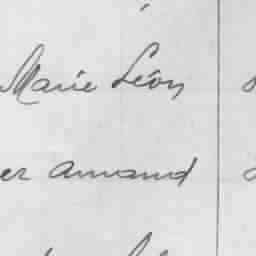 Marie Léon
er Armand